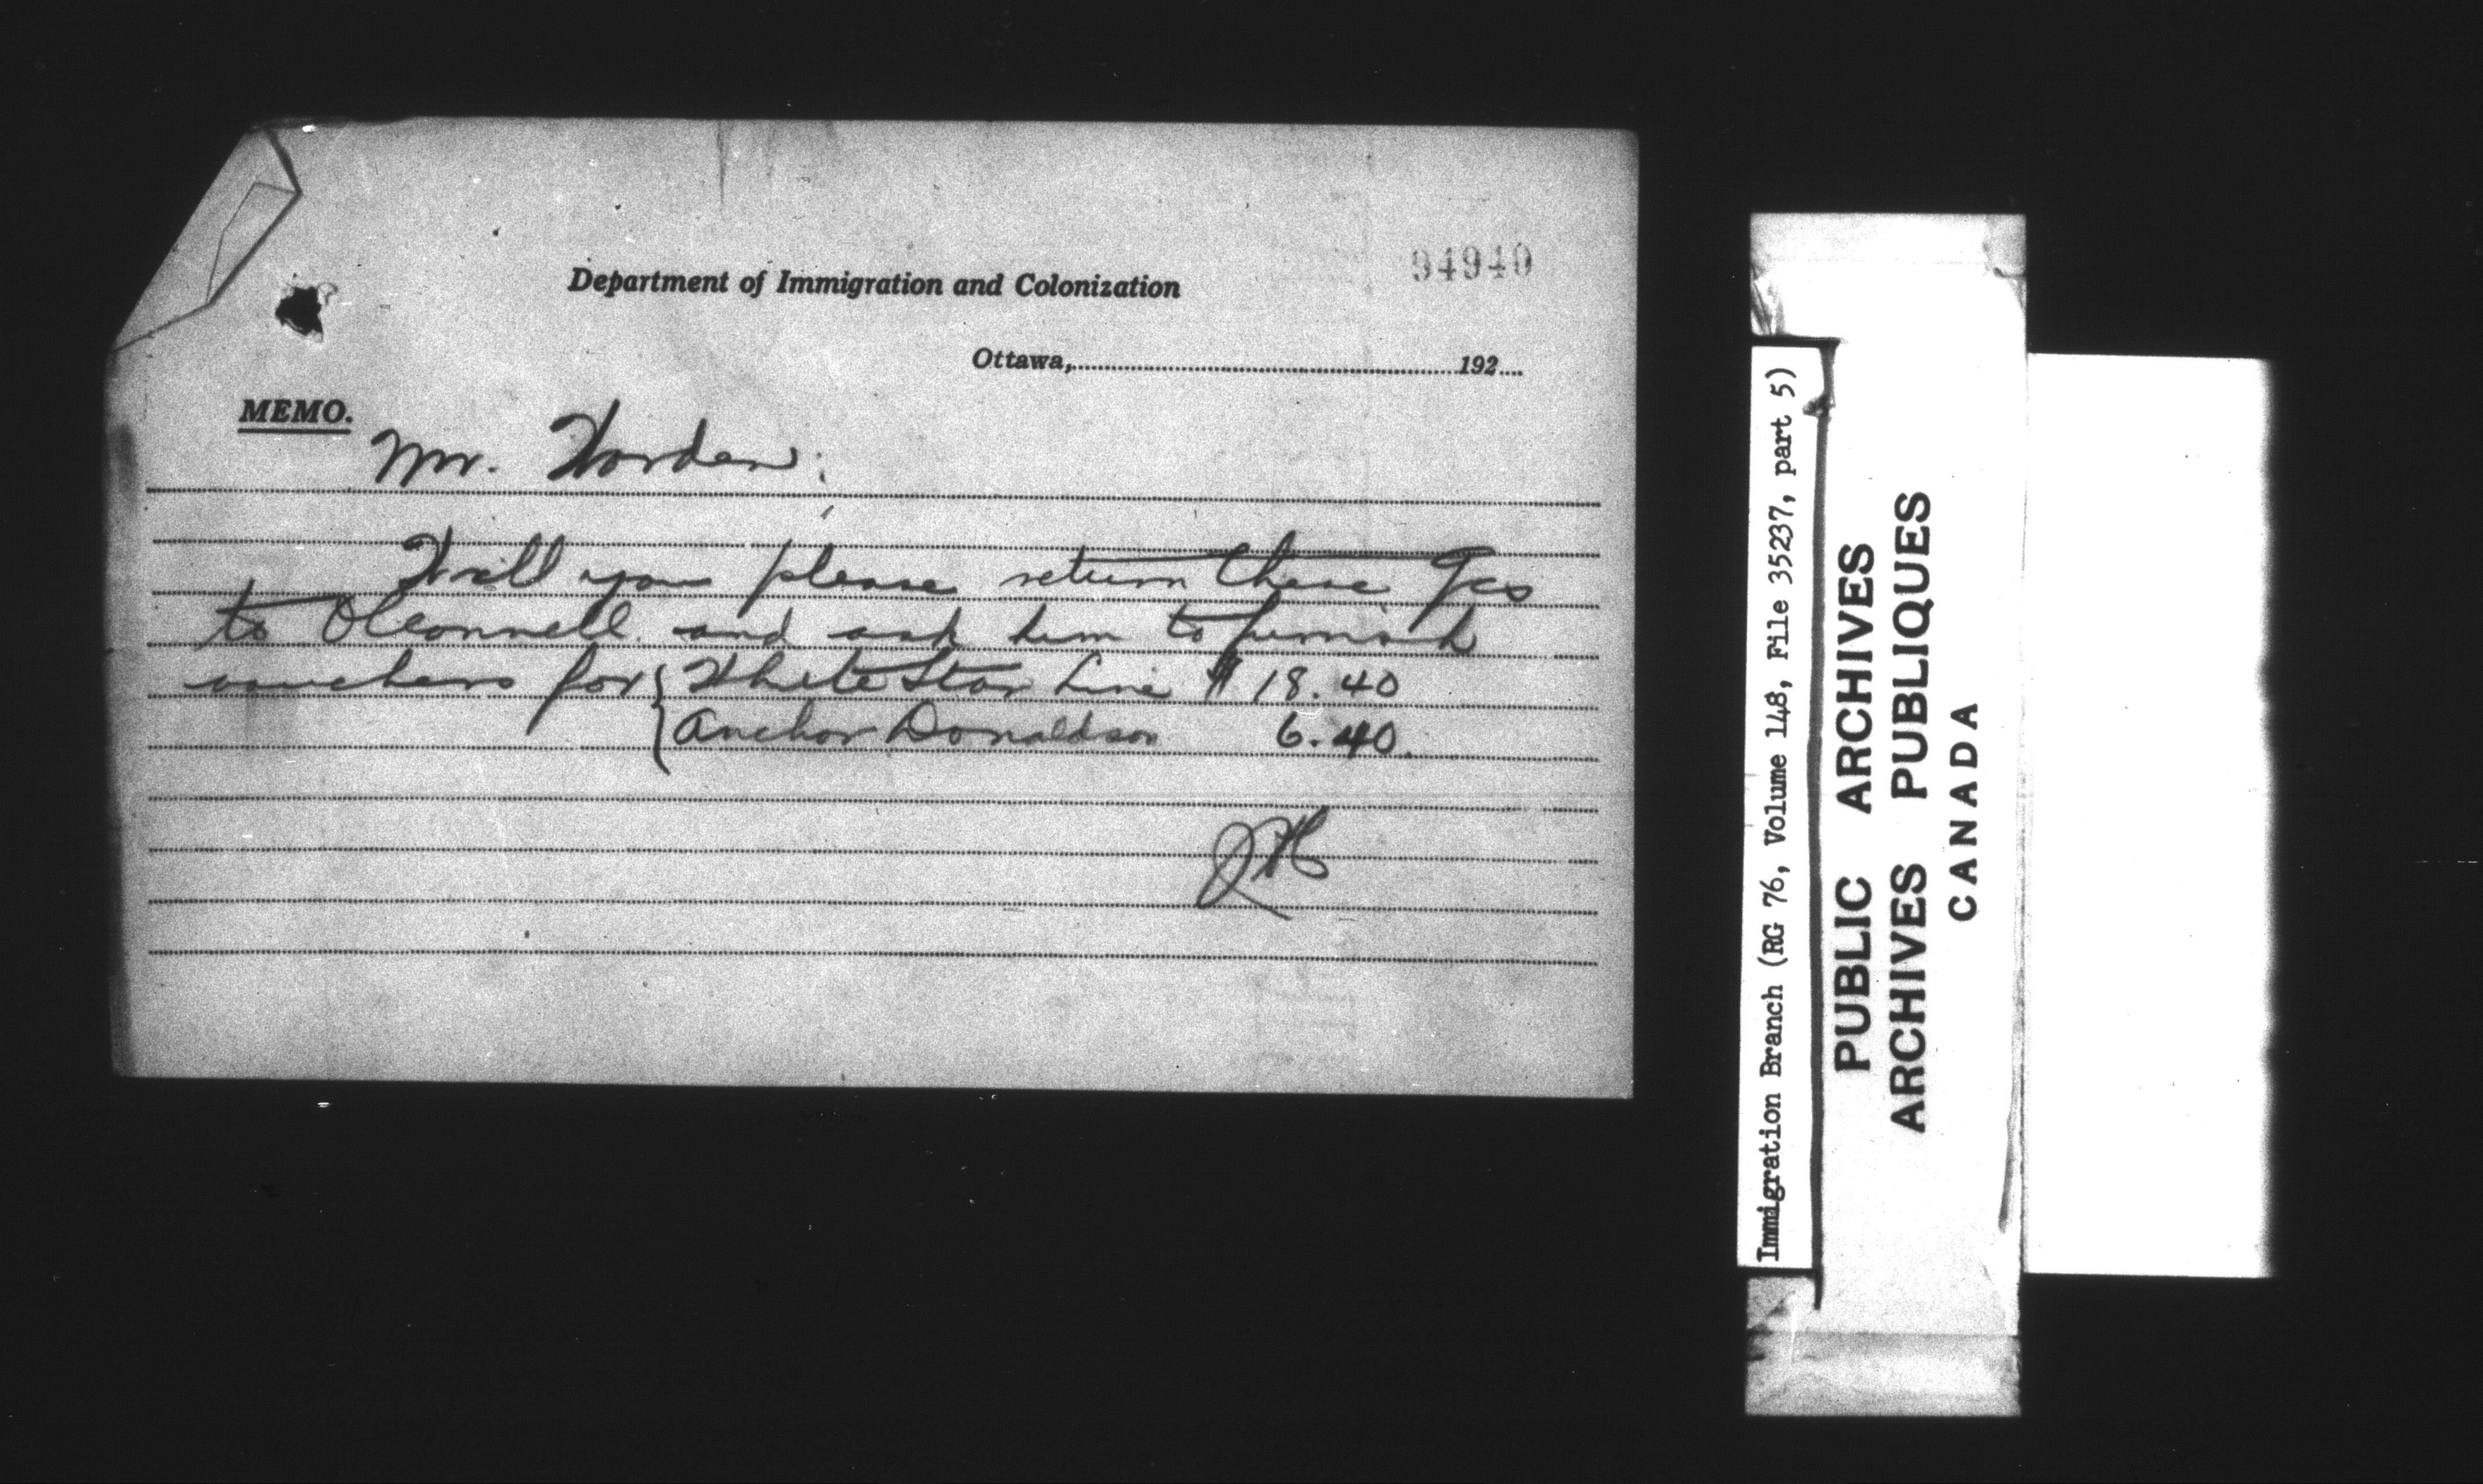 94940
Department of Immigration and Colonization
Ottawa, 192
MEMO.
Mr. Worden;
Will you please return these
to O'Connell and ask him to furnish
vouchers for { White Star Line $ 18.40
Anchor Donaldson 6.40.
Immigration Branch (RG 76, Volume 148, File 35237, part 5)
PUBLIC ARCHIVES
ARCHIVES PUBLIQUES
CANADA